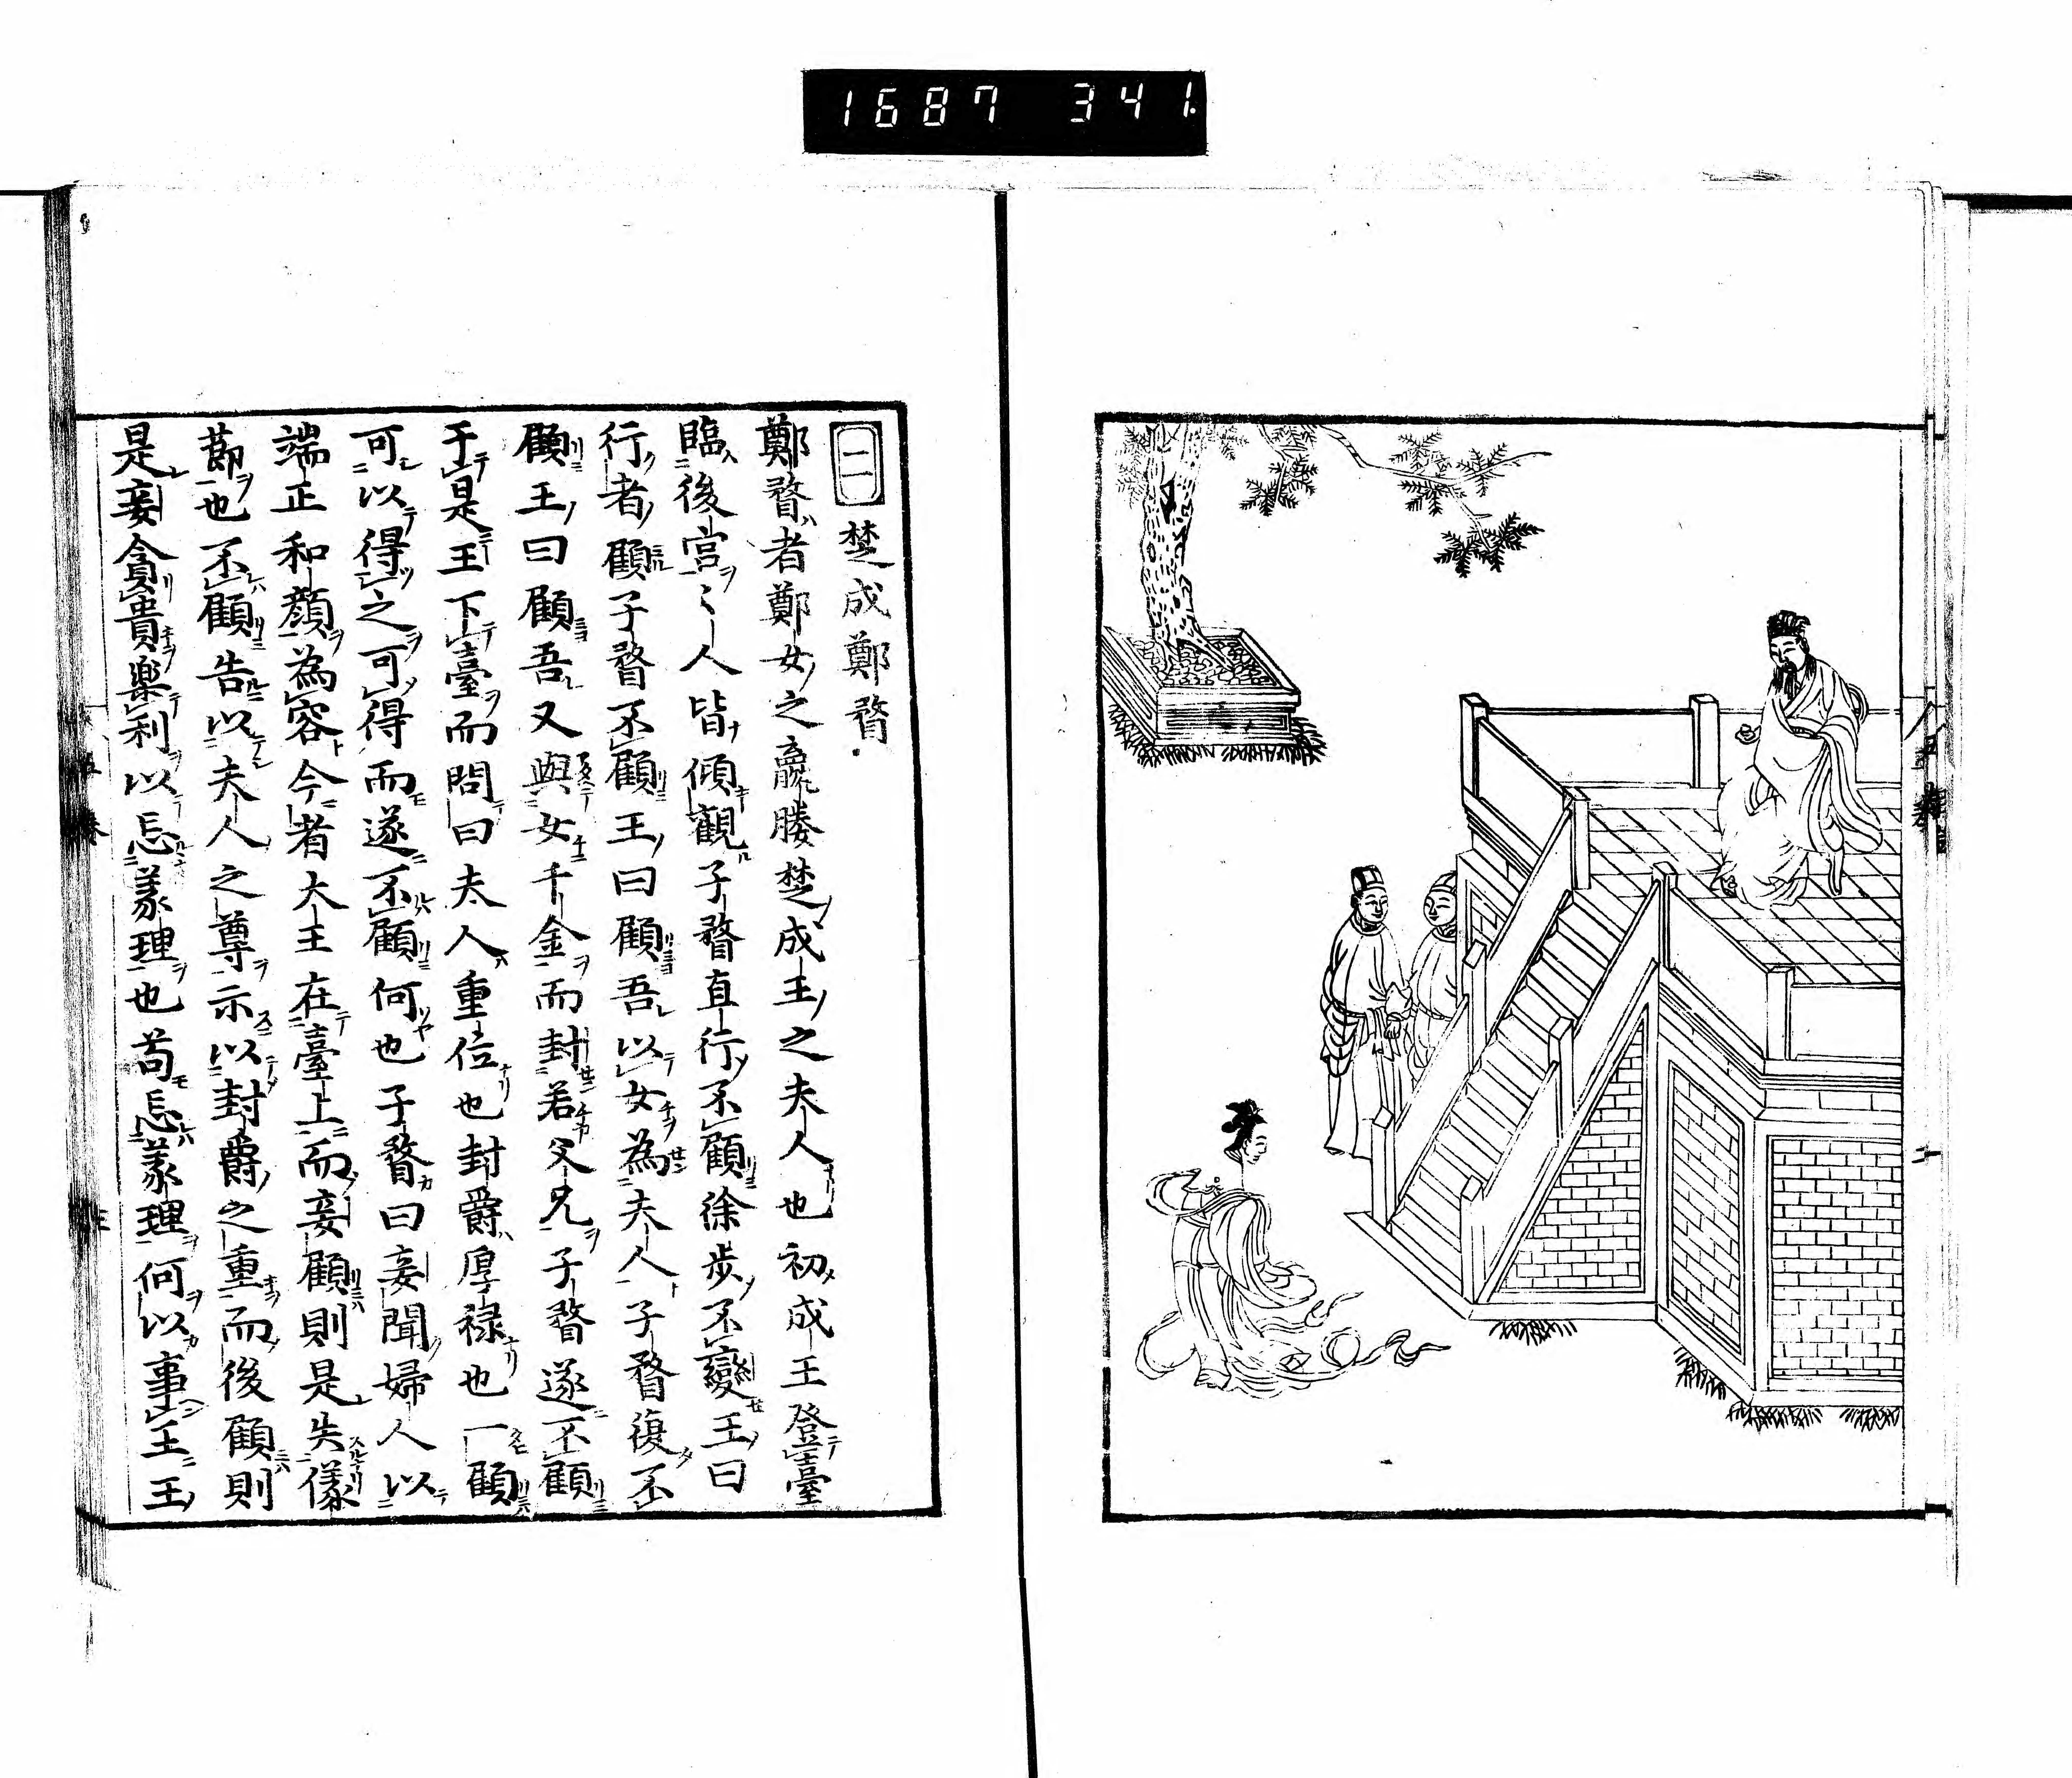 1687 341.
二 楚成鄭瞀
鄭瞀者鄭女之嬴媵楚成王之夫人也初成王登臺
臨後宮〻人皆傾觀子瞀直行不顧徐步不變王曰
行者顧子瞀不顧王曰顧吾以女為夫人子瞀復不
顧王曰顧吾又與女千金而封若父兄子瞀遂不顧
于是王下臺而問曰夫人重位也封爵厚禄也一顧
可以得之可得而遂不顧何也子瞀曰妾聞婦人以
端正和顔為容今者大王在臺上而妾顧則是失儀
莭也不顧告以夫人之尊示以封爵之重而後顧則
是妾貪貴楽利以忘義理也苟忘義理何以事王王